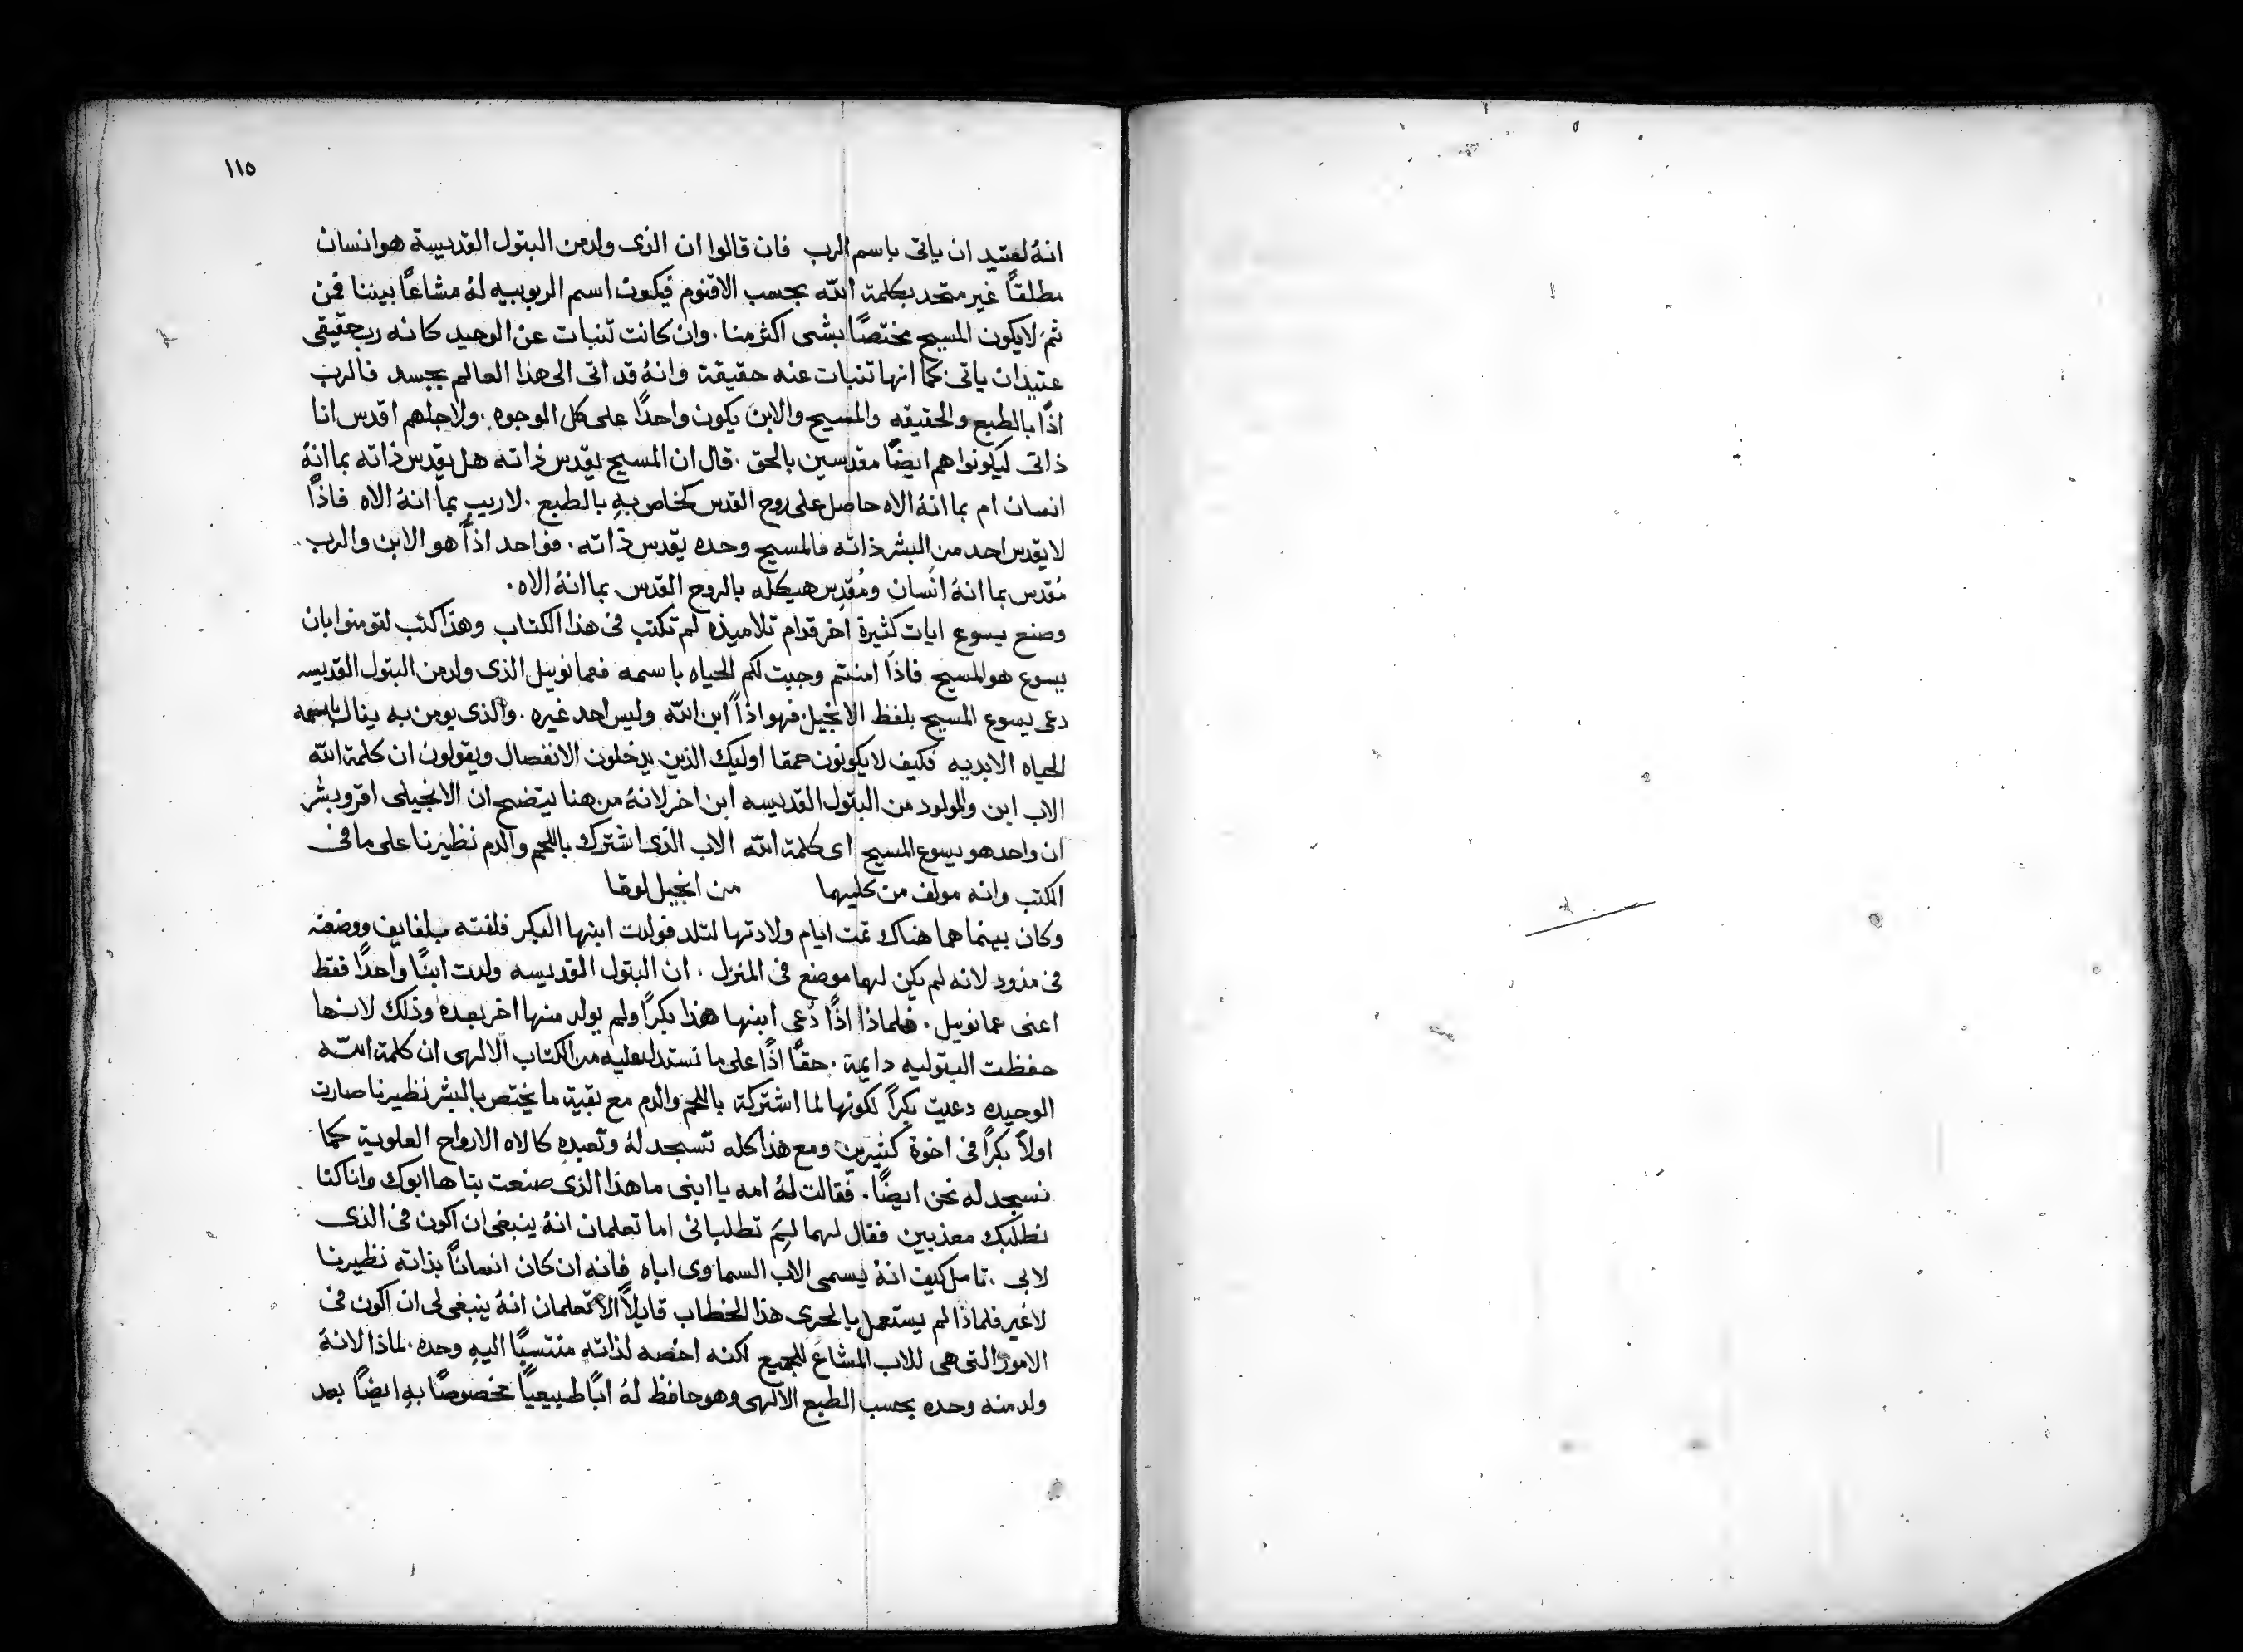 ١١٥
انهُ لعتيد ان ياتى باسم الرب فان قالوا ان الذى ولد من البتول القديسة هو انسان
مطلقاً غير متحد بكلمة الله بحسب الاقنوم فيكون اسم الربوبيه لهُ مشاعاً بيننا فمن
ثم لا يكون المسيح مختصًا بشى اكثر منا . وان كانت تنبات عن الوحيد كانه رب حقيقى
عتيد ان ياتى كما انها تنبات عنه حقيقة وانهُ قد اتى الى هذا العالم بجسد فالرب
اذًا بالطبع والحقيقه والمسيح والابن يكون واحدًا على كل الوجوه . ولاجلهم اقدس انا
ذاتى ليكونوا هم ايضًا مقدسين بالحق . قال ان المسيح يقدس ذاته هل يقدس ذاته بما انهُ
انسان ام بما انهُ الاه حاصل على روح القدس كخاص بهِ بالطبع . لا ريب بما انهُ الاه فاذًا
لا يقدس احد من البشر ذاته فالمسيح وحده يقدس ذاته . فواحد اذاً هو الابن والرب
مُقدس بما انهُ انسان ومُقدِس هيكله بالروح القدس بما انهُ الاه .
وصنع يسوع ايات كثيرة اخر قدام تلاميذه لم تكتب فى هذا الكتاب وهذا كتب لتومنوا بان
يسوع هو المسيح فاذا امنتم وجبت لكم الحياه باسمه فعمانوييل الذى ولد من البتول القديسه
دعى يسوع المسيح بلفظ الانجيل فهو اذاً ابن الله وليس احد غيره . والذى يومن به ينال باسمه
الحياه الابديه فكيف لا يكونون حمقا اوليك الذين يدخلون الانفصال ويقولون ان كلمة الله
الاب ابن والمولود من البتول القديسه ابن اخر لانهُ من هنا يتضح ان الانجيلى اقر وبشر
ان واحد هو يسوع المسيح اى كلمة الله الاب الذى اشترك باللحم والدم نظيرنا على ما فى
الكتب وانه مولف من كليهما من انجيل لوقا
وكان بينما هما هناك تمت ايام ولادتها لتلد فولدت ابنها البكر فلفته بلفايف ووضعته
فى مذود لانه لم يكن لهما موضع فى المنزل . ان البتول القديسه ولدت ابنًا واحدًا فقط
اعنى عمانوييل . فلماذا اذًا دُعى ابنها هذا بكرًا ولم يولد منها اخر بعده وذلك لانها
حفظت البتوليه دايمة . حقًا اذًا على ما نستدل عليه من الكتاب الالهى ان كلمة الله
الوحيده دعيت بكرًا لكونها لما اشتركة باللحم والدم مع بقية ما يختص بالبشر نظيرنا صارت
اولاً بكرًا فى اخوة كثيرين ومع هذا كله تسجد لهُ وتعبده كالاه الارواح العلوية كما
نسجد له نحن ايضًا . فقالت لهُ امه يا ابنى ما هذا الذى صنعت بنا ها ابوك وانا كنا
نطلبك معذبين فقال لهما لِمَ تطلبانى اما تعلمان انهُ ينبغى ان اكون فى الذى
لابى . تامل كيف انهُ يسمى الاب السماوى اباه فانه ان كان انسانًا بذاته نظيرنا
لا غير فلماذا لم يستعمل بالحرى هذا الخطاب قايلاً الا تعلمان انهُ ينبغى لى ان اكون فى
الامور التى هى للاب المشاع للجميع لكنه اخصه لذاته منتسبًا اليهِ وحده . لماذا لانهُ
ولد منه وحده بحسب الطبع الالهى وهو حافظ لهُ ابًا طبيعيًا مخصوصًا بهِ ايضًا بعد